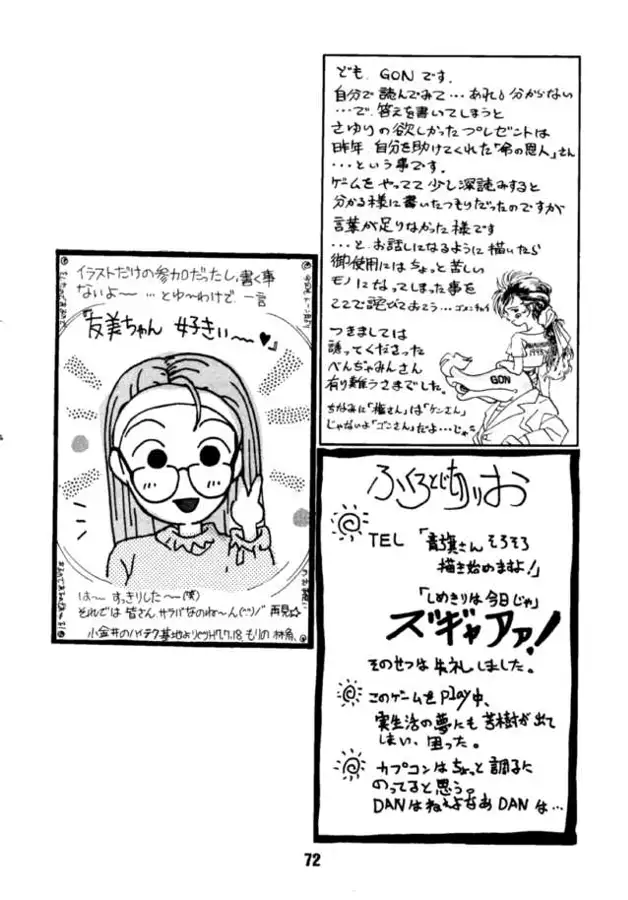 ども、GONです。
自分で読んでみて…あれ?分からない
…で、答えを書いてしまうと
さゆりの欲しかったプレゼントは
昨年 自分を助けてくれた「命の恩人」さん
…という事です。
ゲームをやってて少し深読みすると
分かる様に書いたつもりだったのですが
言葉が足りなかった様です
…と、お話しになるように描いたら
御使用にはちょっと苦しい
モノになってしまった事を
ここで詫びておこう…ゴメンチャイ
つきましては
誘ってくださった
べんぢゃみんさん
有り難うさまでした。
ちなみに「権さん」は「ケンさん」
じゃないよ「ゴンさん」だよ…じゃ
GON
イラストだけの参加だったし、書く事
ないよ〜 …とゆ〜わけで 一言
『友美ちゃん 好きぃ〜♥』
は〜 すっきりした〜(笑)
それでは 皆さん、サラバなのね〜ん(^^)/ 再見☆
小金井のハイテク基地より H7.7.18. もりの
ふくろとじありお
TEL 「青旗さん そろそろ
描き始めますよ!」
「しめきりは今日じゃ」
ズギャアァ!
そのせつは失礼しました。
このゲームをplay中、
実生活の夢にも苦樹が出て
しまい、困った。
カプコンはちょっと調子に
のってると思う。
DANはねぇよなあ DANは…
72